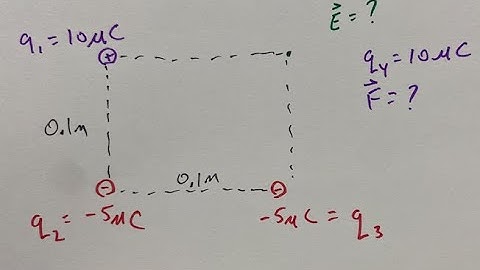 E⃗ = ?
q₁ = 10 μC
+
q₄ = 10 μC
F⃗ = ?
0.1m
0.1m
−
−
q₂ = -5 μC
-5 μC = q₃